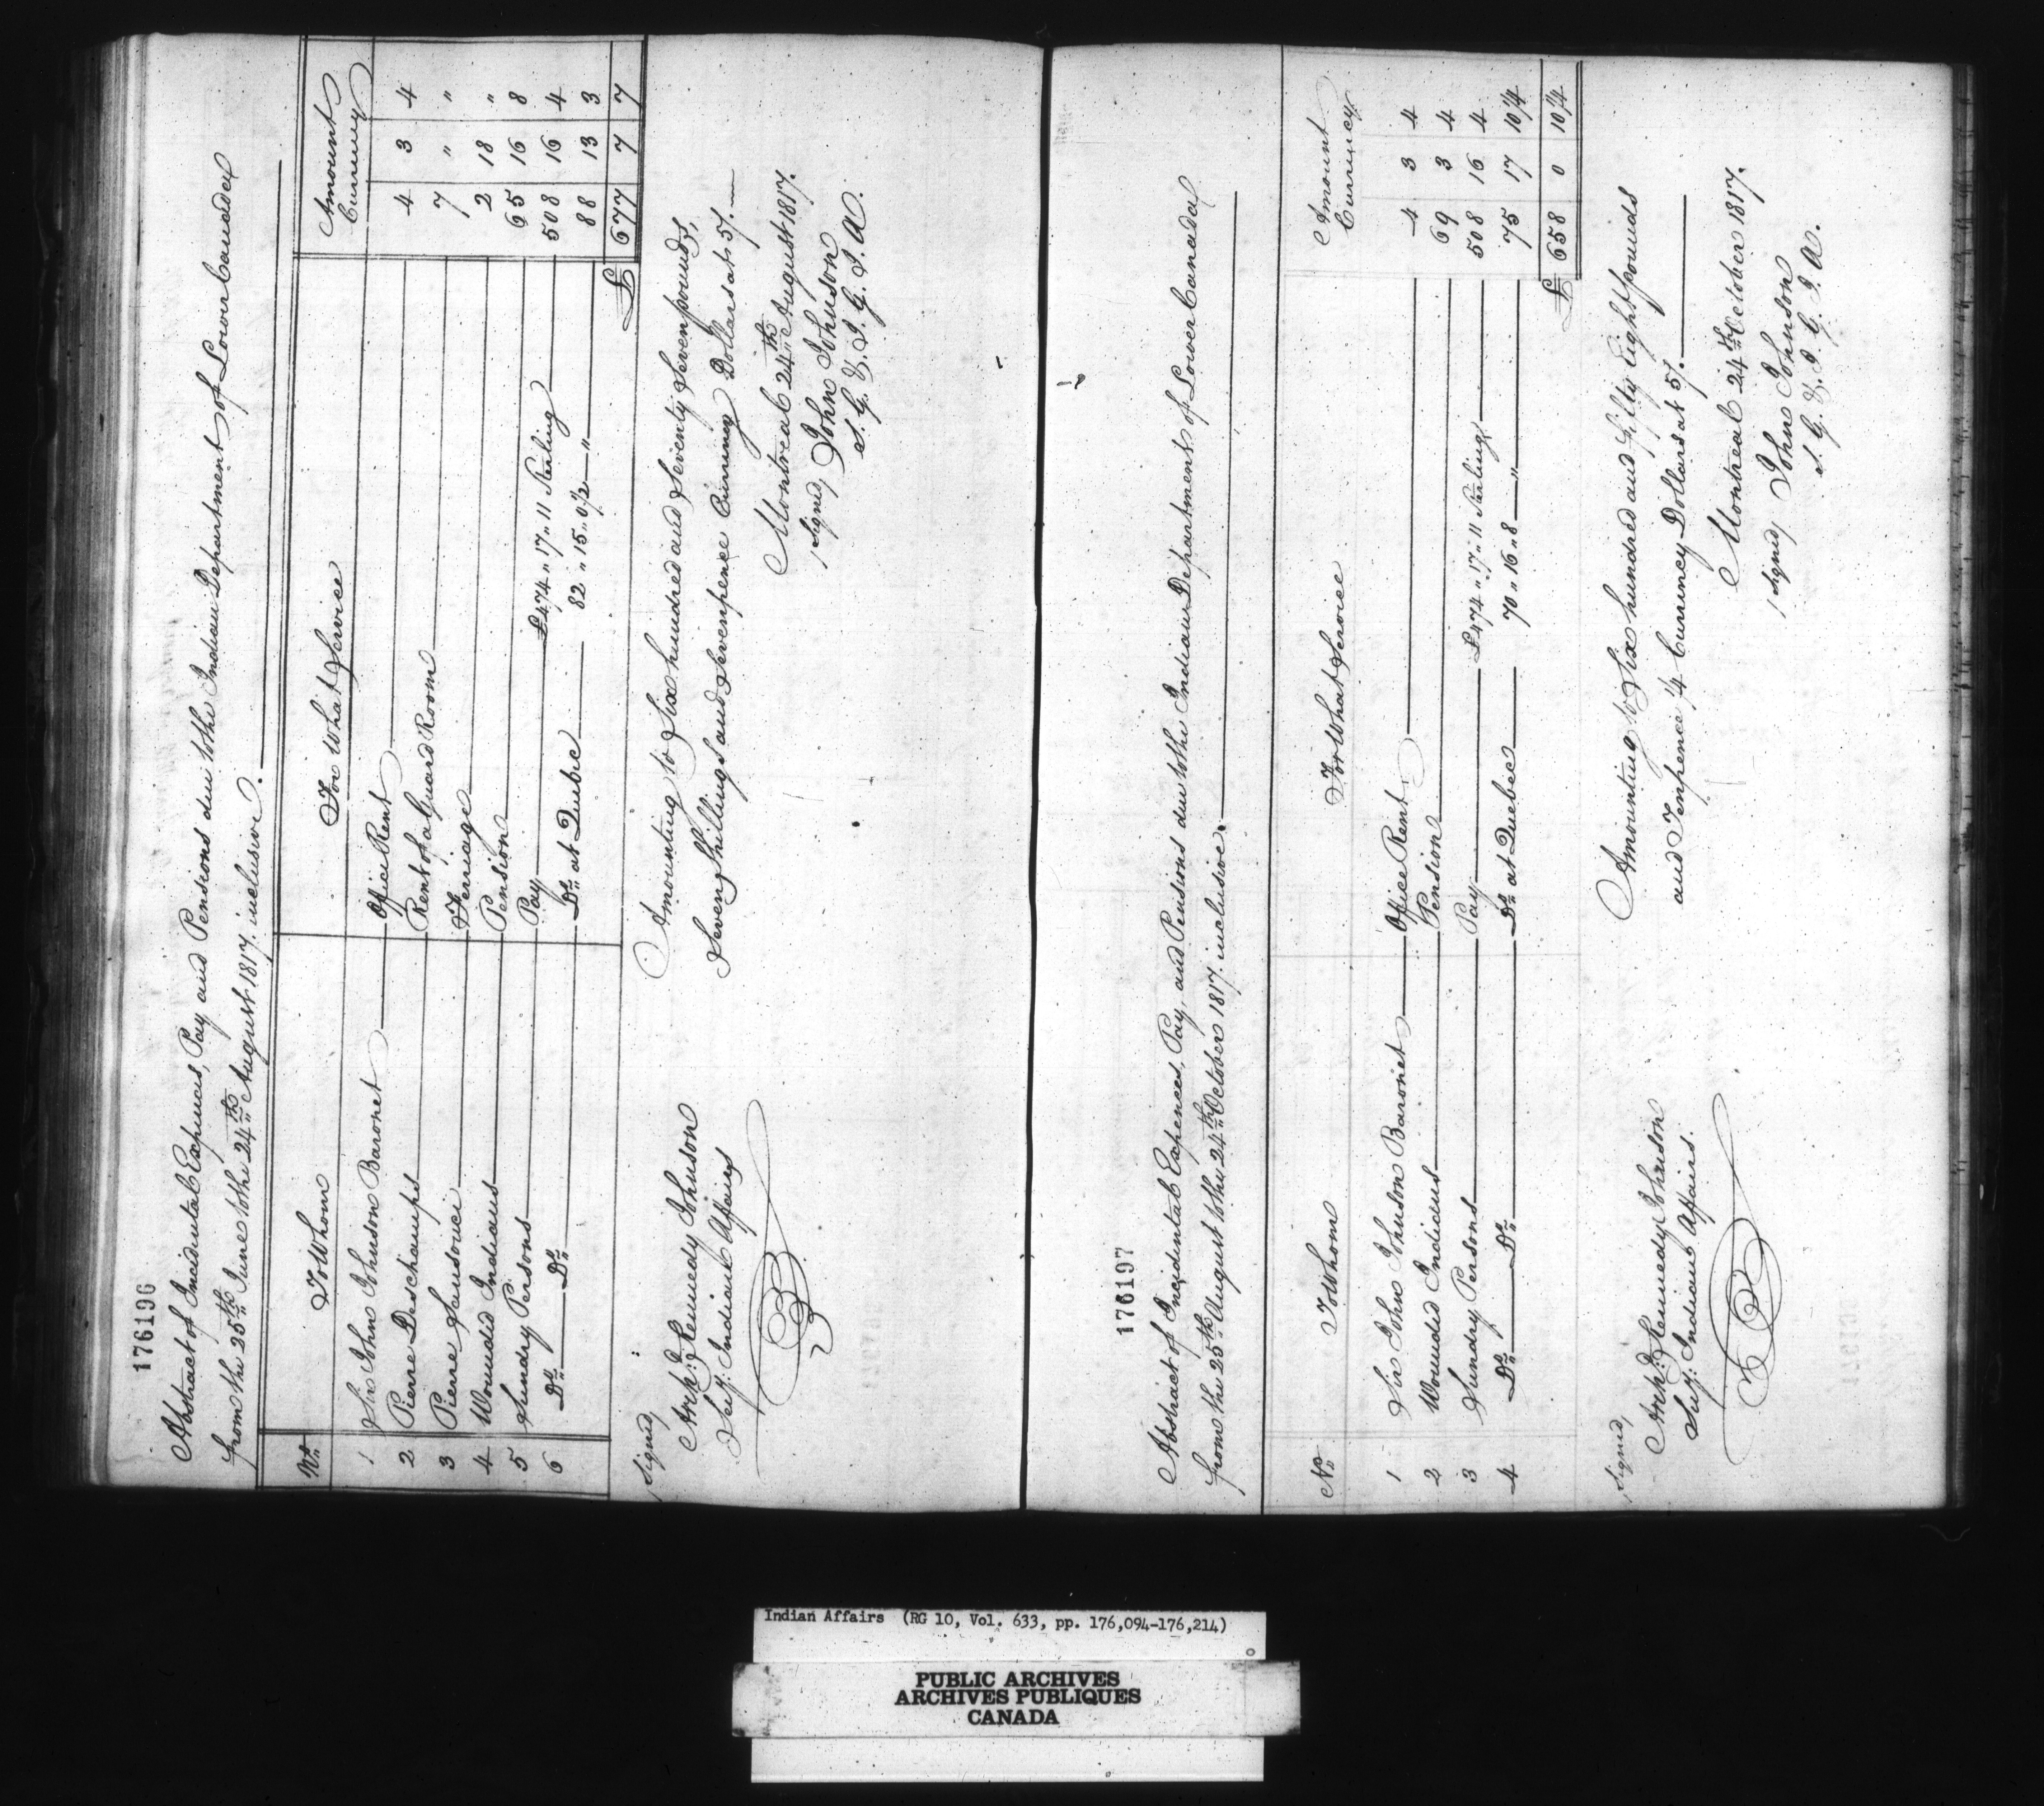 176196
Abstract of Incidental Expences, Pay and Pensions due to the Indian Department of Lower Canada
from the 25th June to the 24th August 1817. inclusive.
No. To Whom For What Service Amount Currency
1 Sir John Johnson Baronet Office Rent 4 3 4
2 Pierre Deschamps Rent of a Guard Room 7 " "
3 Pierre Sansouci Ferriage 2 18 "
4 Wounded Indians Pension 65 16 8
5 Sundry Persons Pay £474 " 17 " 11 Sterling 508 16 4
6 Do. Do. Do. at Quebec 82 " 15 " 0 1/2 " 88 13 3
£ 677 7 7
Amounting to Six hundred and Seventy Seven pounds,
Seven Shillings and Sevenpence Currency Dollars at 5/.
Montreal 24th August 1817.
Signed, John Johnson
S. G. & I. G. I. A.
Signed,
Archd: Kennedy Johnson
Secy: Indian Affairs
176197
Abstract of Incidental Expences, Pay, and Pensions due to the Indian Department of Lower Canada
from the 25th August to the 24th October 1817. inclusive.
No To Whom For What Service Amount Currency
1 Sir John Johnson Baronet Office Rent 4 3 4
2 Wounded Indians Pension 69 3 4
3 Sundry Persons Pay £474 " 17 " 11 Sterling 508 16 4
4 Do. Do. Do. at Quebec 70 " 16 " 8 " 75 17 10 1/4
£ 658 0 10 1/4
Amounting to Six hundred and fifty Eight pounds
and Tenpence 1/4 Currency Dollars at 5/.
Montreal 24th October 1817.
Signed, John Johnson
S. G. & I. G. I. A.
Signed,
Archd: Kennedy Johnson
Secy: Indian Affairs.
Indian Affairs (RG 10, Vol. 633, pp. 176,094-176,214)
PUBLIC ARCHIVES
ARCHIVES PUBLIQUES
CANADA